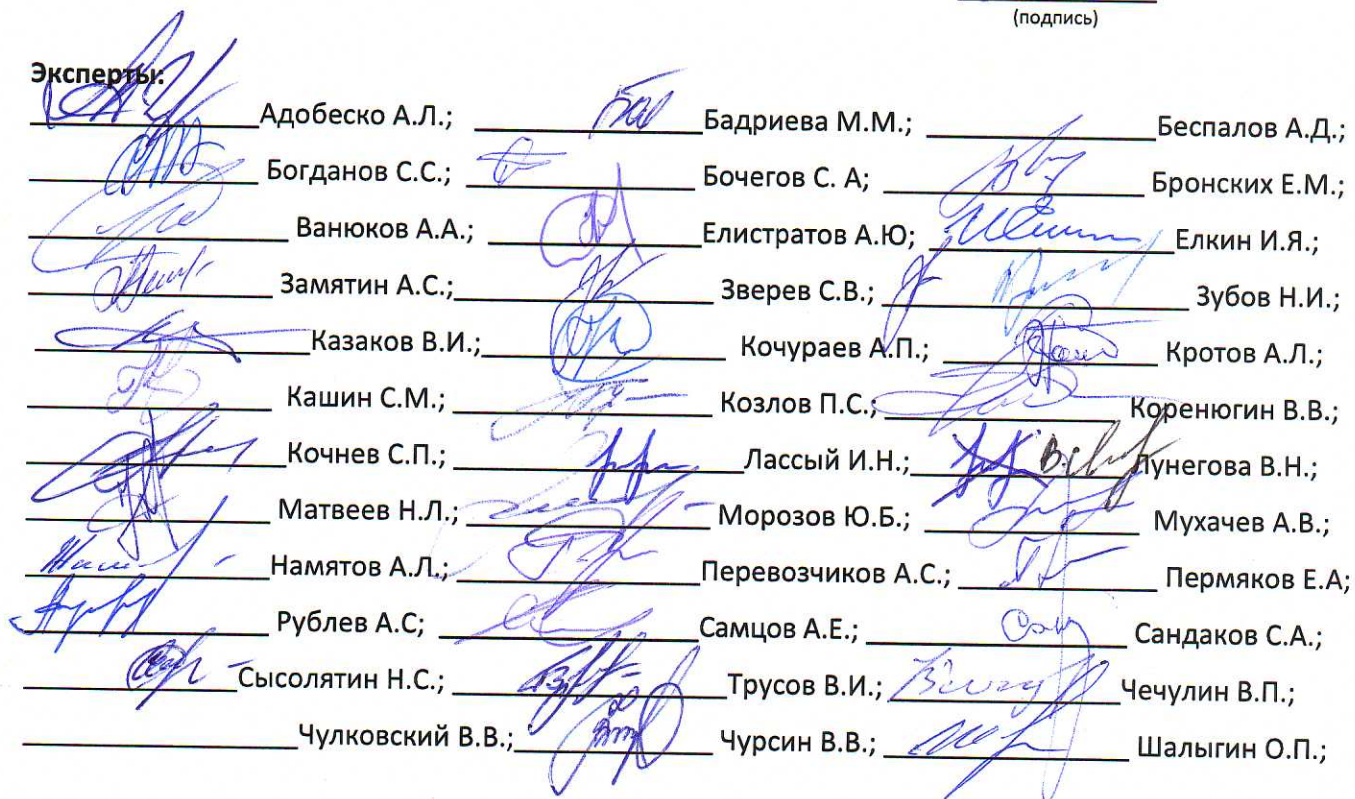 (подпись)
Эксперты:
Адобеско А.Л.; Бадриева М.М.; Беспалов А.Д.;
Богданов С.С.; Бочегов С. А; Бронских Е.М.;
Ванюков А.А.; Елистратов А.Ю; Елкин И.Я.;
Замятин А.С.; Зверев С.В.; Зубов Н.И.;
Казаков В.И.; Кочураев А.П.; Кротов А.Л.;
Кашин С.М.; Козлов П.С.; Коренюгин В.В.;
Кочнев С.П.; Лассый И.Н.; Лунегова В.Н.;
Матвеев Н.Л.; Морозов Ю.Б.; Мухачев А.В.;
Намятов А.Л.; Перевозчиков А.С.; Пермяков Е.А;
Рублев А.С; Самцов А.Е.; Сандаков С.А.;
Сысолятин Н.С.; Трусов В.И.; Чечулин В.П.;
Чулковский В.В.; Чурсин В.В.; Шалыгин О.П.;